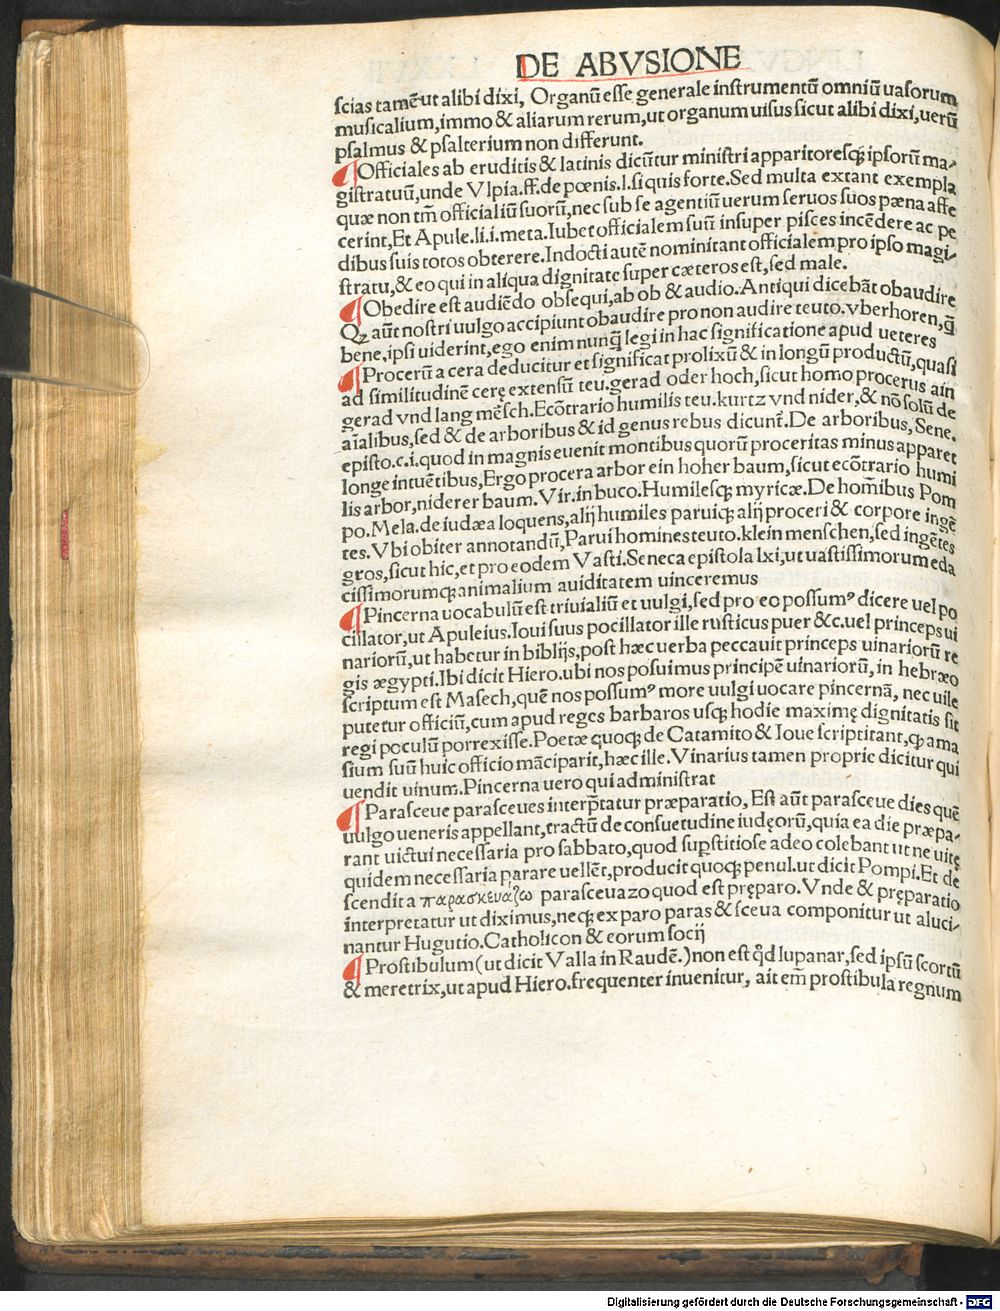 DE ABVSIONE
ſcias tamẽ ut alibi dixi, Organũ eſſe generale inſtrumentũ omniũ uaſorum
muſicalium, immo & aliarum rerum, ut organum uiſus ſicut alibi dixi, uerũ
pſalmus & pſalterium non differunt.
¶ Officiales ab eruditis & latinis dicũtur miniſtri apparitoreſꝗ ipſorũ ma-
giſtratuũ, unde Vlpia. ff. de pœnis. l. ſi quis forte. Sed multa extant exempla
quæ non tm̃ officialiũ ſuorũ, nec ſub ſe agentiũ uerum ſeruos ſuos pæna affe
cerint, Et Apule. li. i. meta. Iubet officialem ſuũ inſuper piſces incẽdere ac pe
dibus ſuis totos obterere. Indocti autẽ nominitant officialem pro ipſo magi-
ſtratu, & eo qui in aliqua dignitate ſuper cæteros eſt, ſed male.
¶ Obedire eſt audiẽdo obſequi, ab ob & audio. Antiqui dicebãt obaudire
Qꝫ aũt noſtri uulgo accipiunt obaudire pro non audire teuto. vberhoren, ꝗ̃
bene, ipſi uiderint, ego enim nunꝗ̃ legi in hac ſignificatione apud ueteres
¶ Procerũ a cera deducitur et ſignificat prolixũ & in longũ productũ, quaſi
ad ſimilitudinẽ cerę extenſũ teu. gerad oder hoch, ſicut homo procerus ain
gerad vnd lang mẽſch. Ecõtrario humilis teu. kurtz vnd nider, & nõ ſolũ de
aĩalibus, ſed & de arboribus & id genus rebus dicunt̃. De arboribus, Sene.
epiſto. c. i. quod in magnis euenit montibus quorũ proceritas minus apparet
longe intuẽtibus, Ergo procera arbor ein hoher baum, ſicut ecõtrario humi
lis arbor, niderer baum. Vir. in buco. Humileſꝗ myricæ. De hom̃ibus Pom
po. Mela. de iudæa loquens, alij humiles paruiꝗ alij proceri & corpore ingẽ
tes. Vbi obiter annotandũ, Parui homines teuto. klein menſchen, ſed ingẽtes
gros, ſicut hic, et pro eodem Vaſti. Seneca epiſtola lxi, ut uaſtiſſimorum eda
ciſſimorumꝗ animalium auiditatem uinceremus
¶ Pincerna uocabulũ eſt triuialiũ et uulgi, ſed pro eo poſſumꝰ dicere uel po
cillator, ut Apuleius. Ioui ſuus pocillator ille ruſticus puer &c. uel princeps ui
nariorũ, ut habetur in biblijs, poſt hæc uerba peccauit princeps uinariorũ re
gis ægypti. Ibi dicit Hiero. ubi nos poſuimus principẽ uinariorũ, in hebræo
ſcriptum eſt Maſech, quẽ nos poſſumꝰ more uulgi uocare pincernã, nec uile
putetur officiũ, cum apud reges barbaros uſꝗ hodie maximę dignitatis ſit
regi poculũ porrexiſſe. Poetæ quoꝗ de Catamito & Ioue ſcriptitant, ꝙ ama
ſium ſuũ huic officio mãciparit, hæc ille. Vinarius tamen proprie dicitur qui
uendit uinum. Pincerna uero qui adminiſtrat
¶ Paraſceue paraſceues interp̃tatur præparatio, Eſt aũt paraſceue dies quẽ
uulgo ueneris appellant, tractũ de conſuetudine iudęorũ, quia ea die præpa-
rant uictui neceſſaria pro ſabbato, quod ſuꝑſtitioſe adeo colebant ut ne uitę
quidem neceſſaria parare uellẽt, producit quoꝗ penul. ut dicit Pompi. Et de
ſcendit a παρασκευαζω paraſceuazo quod eſt pręparo. Vnde & pręparatio
interpretatur ut diximus, neꝗ ex paro paras & ſceua componitur ut aluci-
nantur Hugutio. Catholicon & eorum ſocij
¶ Proſtibulum (ut dicit Valla in Raudẽ.) non eſt qͥd lupanar, ſed ipſũ ſcortũ
& meretrix, ut apud Hiero. frequenter inuenitur, ait em̃ proſtibula regnum
Digitalisierung gefördert durch die Deutsche Forschungsgemeinschaft - DFG